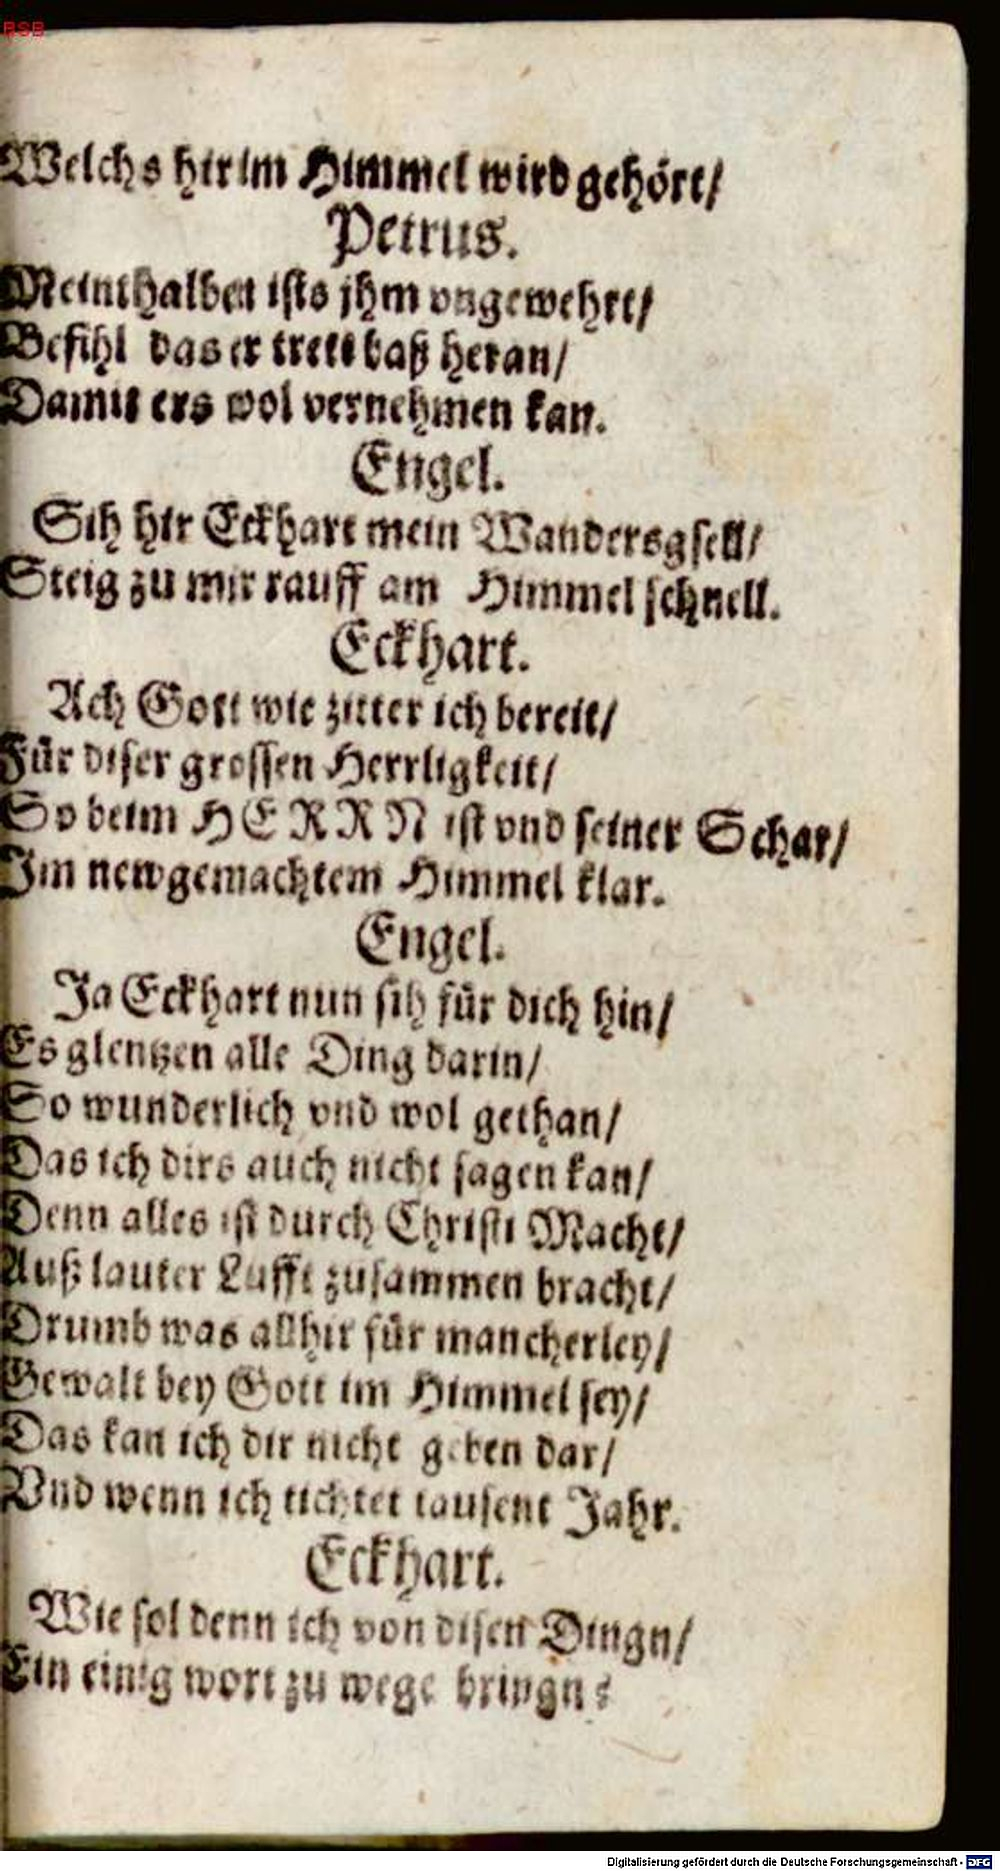 BSB
Welchs hir im Himmel wird gehört/
Petrus.
Meinthalben ists jhm vngewehrt/
Befihl das er trett baß heran/
Damit ers wol vernehmen kan.
Engel.
Sih hir Eckhart mein Wandersgsell/
Steig zu mir rauff am Himmel schnell.
Eckhart.
Ach Gott wie zitter ich bereit/
Für diser grossen Herrligkeit/
So beim HERRN ist vnd seiner Schar/
Im newgemachtem Himmel klar.
Engel.
Ja Eckhart nun sih für dich hin/
Es glentzen alle Ding darin/
So wunderlich vnd wol gethan/
Das ich dirs auch nicht sagen kan/
Denn alles ist durch Christi Macht/
Auß lauter Lufft zusammen bracht/
Drumb was allhir für mancherley/
Gewalt bey Gott im Himmel sey/
Das kan ich dir nicht geben dar/
Vnd wenn ich tichtet tausent Jahr.
Eckhart.
Wie sol denn ich von disen Dingn/
Ein einig wort zu wege bringn?
Digitalisierung gefördert durch die Deutsche Forschungsgemeinschaft - DFG